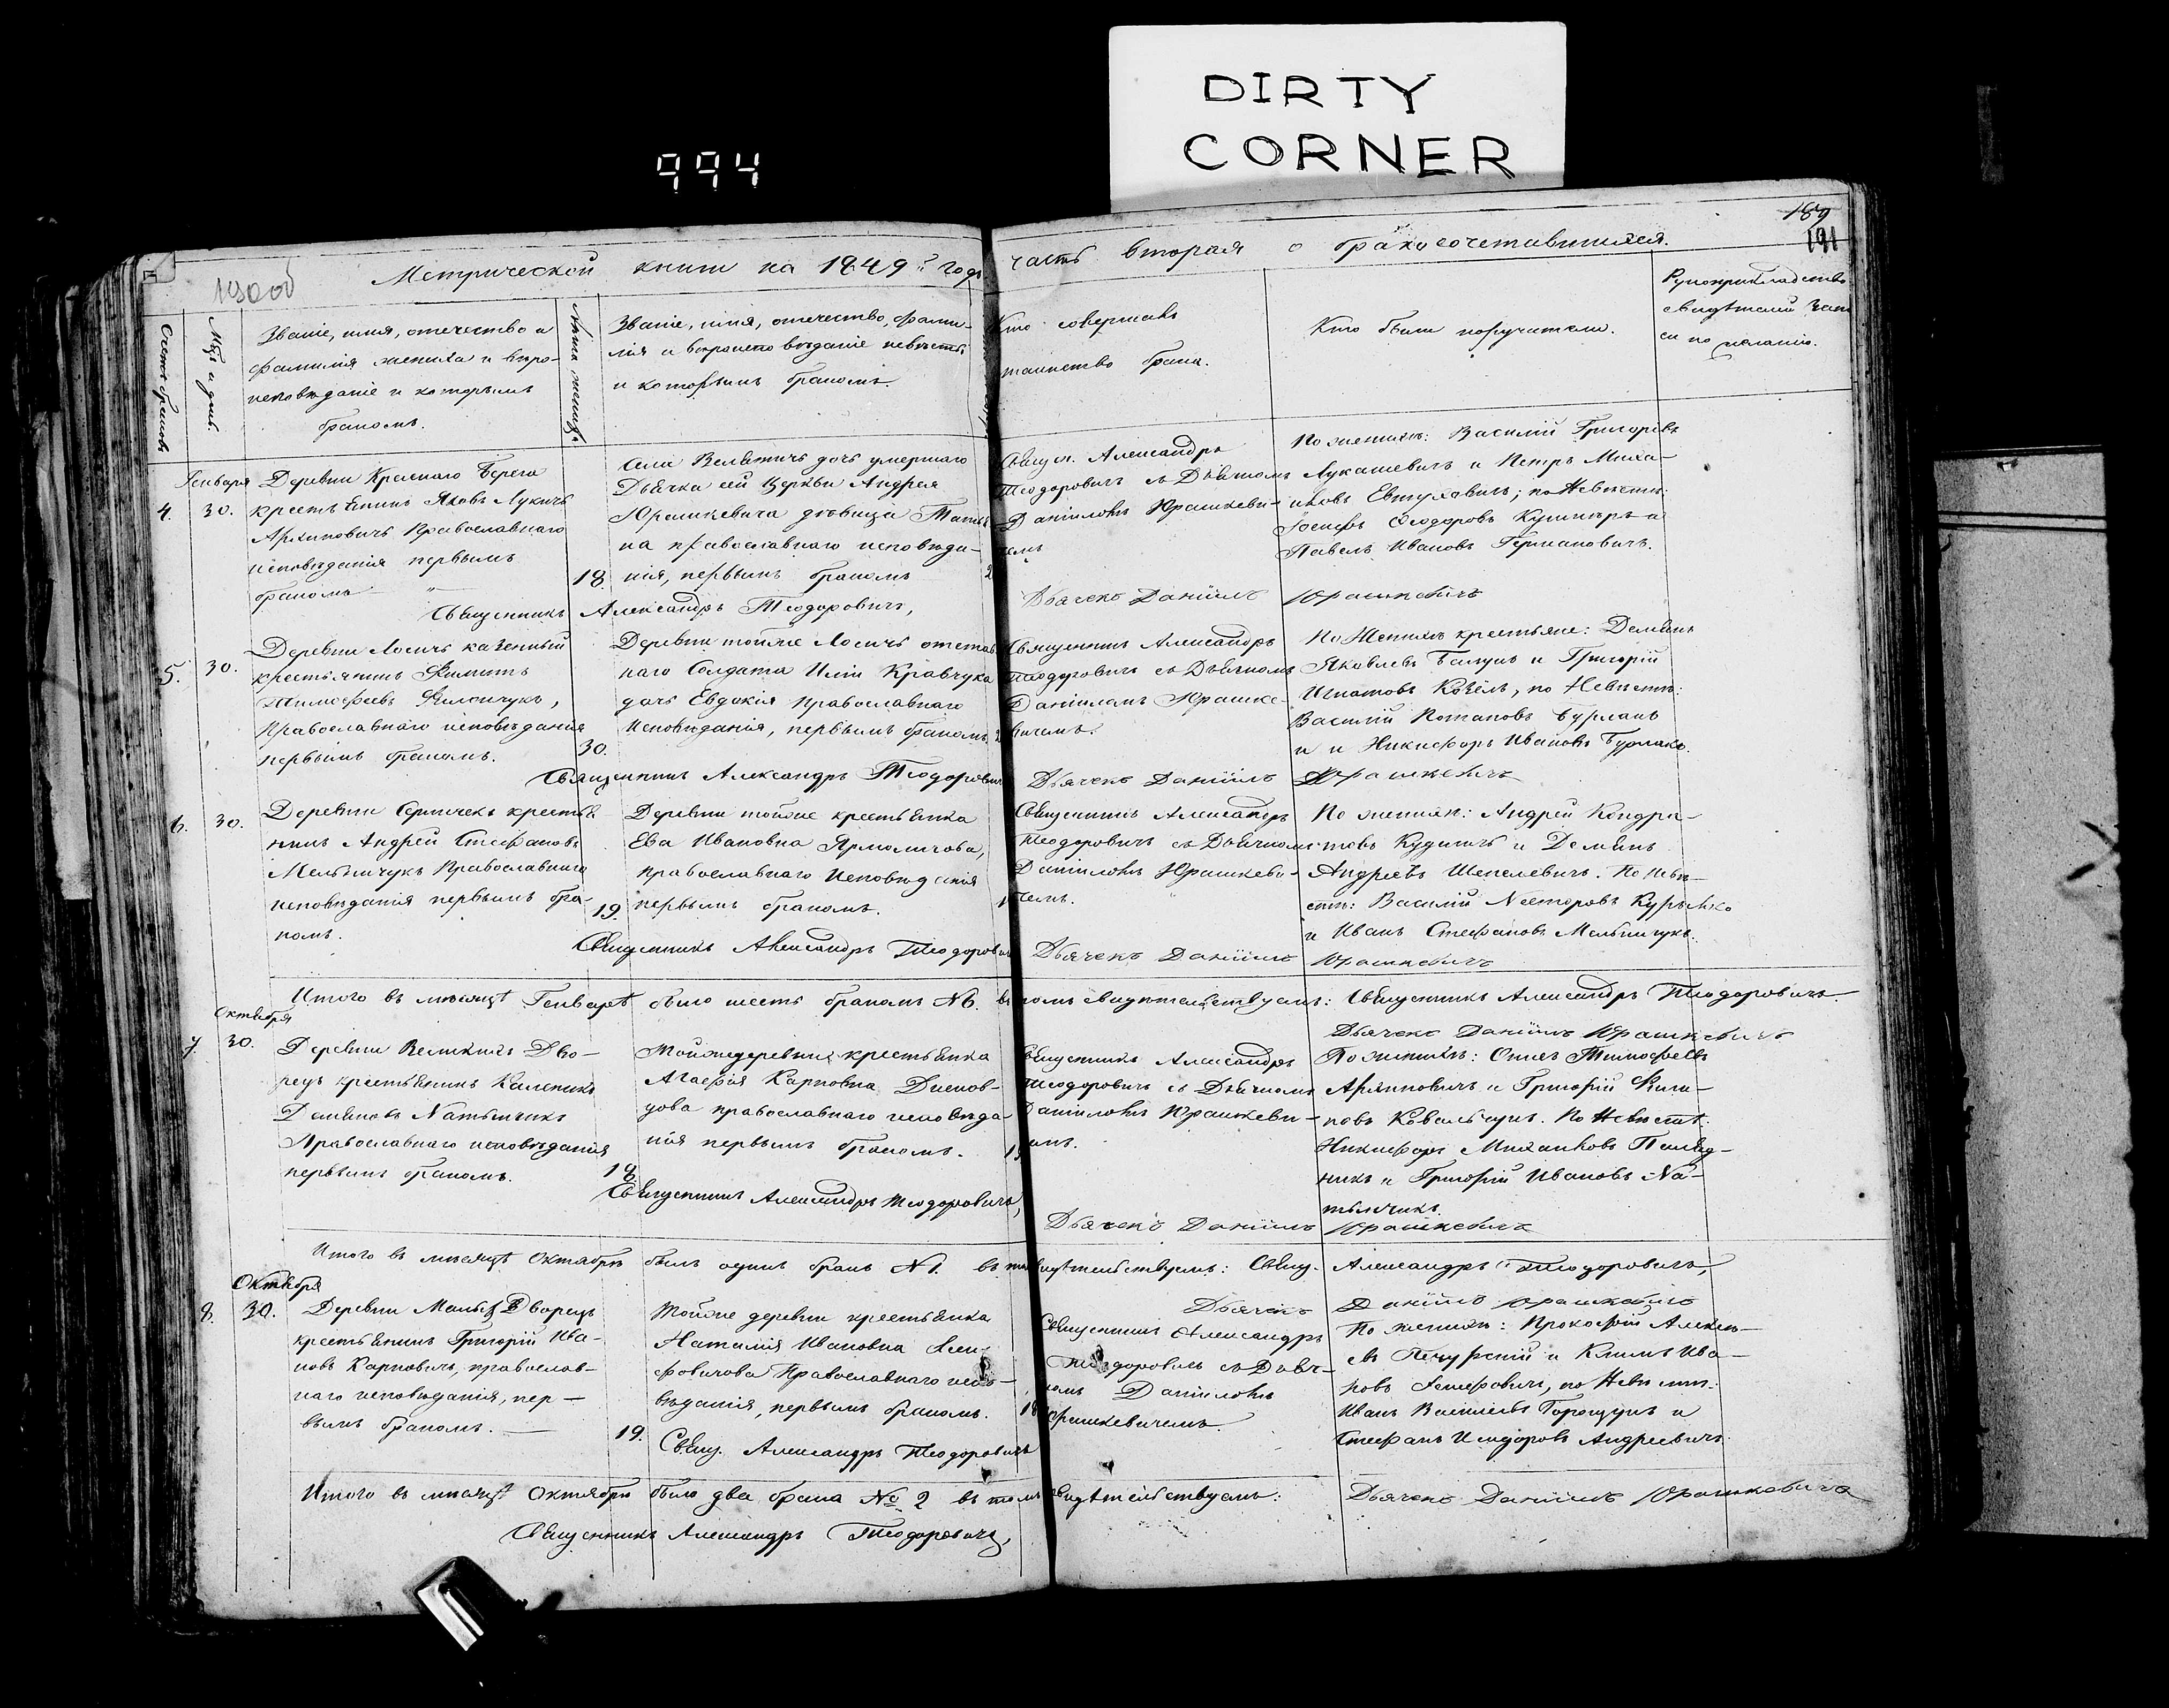 DIRTY
CORNER
994
189
191
190об
Метрической книги на 1849й годъ часть вторая о бракосочетавшихся.
Счетъ браковъ
Мѣс. и день.
Званіе, имя, отечество и
фамилія жениха и вѣро-
исповѣданіе и которымъ
бракомъ.
Лѣта жениха
Званіе, имя, отечество, фами-
лія и вѣроисповѣданіе невѣсты
и которымъ бракомъ.
Кто совершалъ
таинство брака.
Кто были поручители.
Рукоприкладство
свидѣтелей запи
си по желанію.
Генваря
4. 30.
Деревни Краснаго Берега
крестьянинъ Яковъ Лукичъ
Архиповичъ Православнаго
исповѣданія первымъ
бракомъ
18
Села Велятичъ дочь умершаго
Дьячка сей Церкви Андрея
Юрашкевича дѣвица Татья
на православнаго исповѣда-
нія, первымъ бракомъ
Свящ. Александръ
Теодоровичъ съ Дьячкомъ
Даніиломъ Юрашкеви-
чемъ
По женихѣ: Василій Григорьевъ
Лукашевичъ и Петръ Миха-
иловъ Евтуховичъ; по Невѣстѣ:
Іосифъ Ѳеодоровъ Кушнѣръ и
Павелъ Ивановъ Германовичъ.
Священникъ Александръ Теодоровичъ,
Дьячекъ Даніилъ Юрашкевичъ
5. 30.
Деревни Лосичъ казенный
крестьянинъ Филипъ
Тимофеевъ Филончукъ,
Православнаго исповѣданія
первымъ бракомъ.
30.
Деревни тойже Лосичъ отстав
наго Солдата Иліи Кравчука
дочь Евдокія православнаго
Исповѣданія, первымъ бракомъ.
Священникъ Александръ
Теодоровичъ съ Дьячкомъ
Даніиломъ Юрашке-
вичемъ.
По Женихѣ крестьяне: Демьянъ
Яковлевъ Балунъ и Григорій
Игнатовъ Козелъ, по Невѣстѣ:
Василій Потаповъ Бурлакъ
и и Никифоръ Ивановъ Бурлакъ.
Священникъ Александръ Теодоровичъ
Дьячекъ Даніилъ Юрашкевичъ
6. 30.
Деревни Серничекъ крестья
нинъ Андрей Стефановъ
Мельничукъ Православнаго
исповѣданія первымъ бра-
комъ.
19
Деревни тойже крестьянка
Ева Ивановна Ярмоличова,
православнаго Исповѣданія
первымъ бракомъ.
Священникъ Александръ
Теодоровичъ съ Дьячкомъ
Даніиломъ Юрашкеви-
чемъ.
По женихѣ: Андрей Кондра-
товъ Кудиничъ и Демьянъ
Андреевъ Шепелевичъ. По невѣ-
стѣ: Василій Несторовъ Курьянъ
и Иванъ Стефановъ Мельничукъ.
Священникъ Александръ Теодоровичъ
Дьячекъ Даніилъ Юрашкевичъ
Итого въ мѣсяцѣ Генварѣ было шесть браковъ №6. въ томъ свидѣтельствуемъ: Священникъ Александръ Теодоровичъ
Дьячекъ Даніилъ Юрашкевичъ
Октября
7. 30.
Деревни Великихъ Дво-
рецъ крестьянинъ Каленикъ
Демьяновъ Натынчикъ
Православнаго исповѣданія
первымъ бракомъ.
18
Тойже деревни крестьянка
Агафія Карповна
православнаго исповѣда-
нія первымъ бракомъ.
Священникъ Александръ
Теодоровичъ съ Дьячкомъ
Даніиломъ Юрашкеви-
чемъ.
По женихѣ: Тимофеевъ
Архиповичъ и Григорій Фили-
повъ Ковальчукъ. По Невѣстѣ:
Никифоръ Михайловъ
и Григорій Ивановъ На-
тынчикъ
Священникъ Александръ Теодоровичъ,
Дьячекъ Даніилъ Юрашкевичъ
Итого въ мѣсяцѣ Октябрѣ былъ одинъ бракъ №1. въ томъ свидѣтельствуемъ: Свящ. Александръ Теодоровичъ,
Дьячекъ Даніилъ Юрашкевичъ
Октября
8. 30.
Деревни Малыхъ Дворецъ
крестьянинъ Григорій Ива-
новъ Карповичъ, православ-
наго исповѣданія, пер-
вымъ бракомъ.
19.
Тойже деревни крестьянка
Наталія Ивановна
Православнаго испо-
вѣданія, первымъ бракомъ.
Священникъ Александръ
Теодоровичъ съ Дьяч-
комъ Даніиломъ
Юрашкевичемъ.
По женихѣ: Прокофій Алексѣ-
евъ Печурскій и Климъ Ива-
новъ Іосифовичъ, по Невѣстѣ:
Иванъ Васильевъ Горощукъ и
Стефанъ Исидоровъ Андреевичъ.
Свящ. Александръ Теодоровичъ
Итого въ мѣсяцѣ Октябрѣ было два брака №2 въ томъ свидѣтельствуемъ: Дьячекъ Даніилъ Юрашкевичъ
Священникъ Александръ Теодоровичъ,